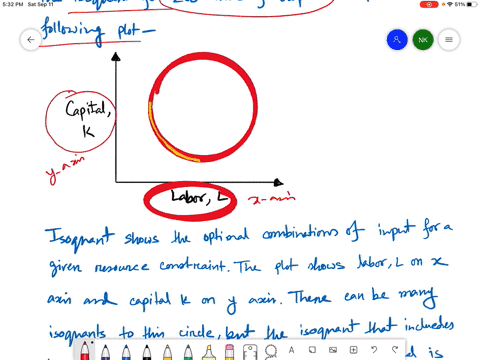 5:32 PM Sat Sep 11
51%
following plot—
NK
Capital,
K
y-axis
Labor, L
x-axis
Isoquant shows the optional combinations of input for a
given resource constraint. The plot shows labor, L on x
axis and capital K on y axis. There can be many
isoquants to this circle, but the isoquant that includes
is
A